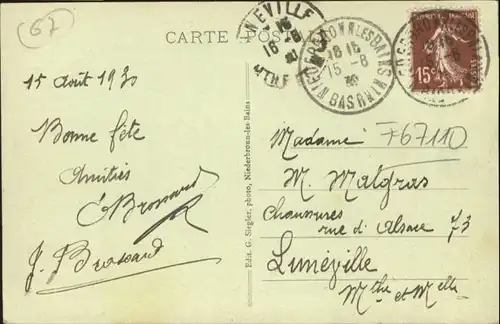 67
CARTE POST
NEVILLE
16
NIEDERBRONN LES BAINS
18 15
15-8
BAS RHIN
15c
POSTES
15 Août 1930
Bonne fête
Amitiés
EBrossard
J. Brossard
Edit. G. Siegler, photo, Niederbronn-les-Bains
Madame F67110
M. Malgras
Chaussures
rue d'Alsace 73
Lunéville
Mthe et Melle